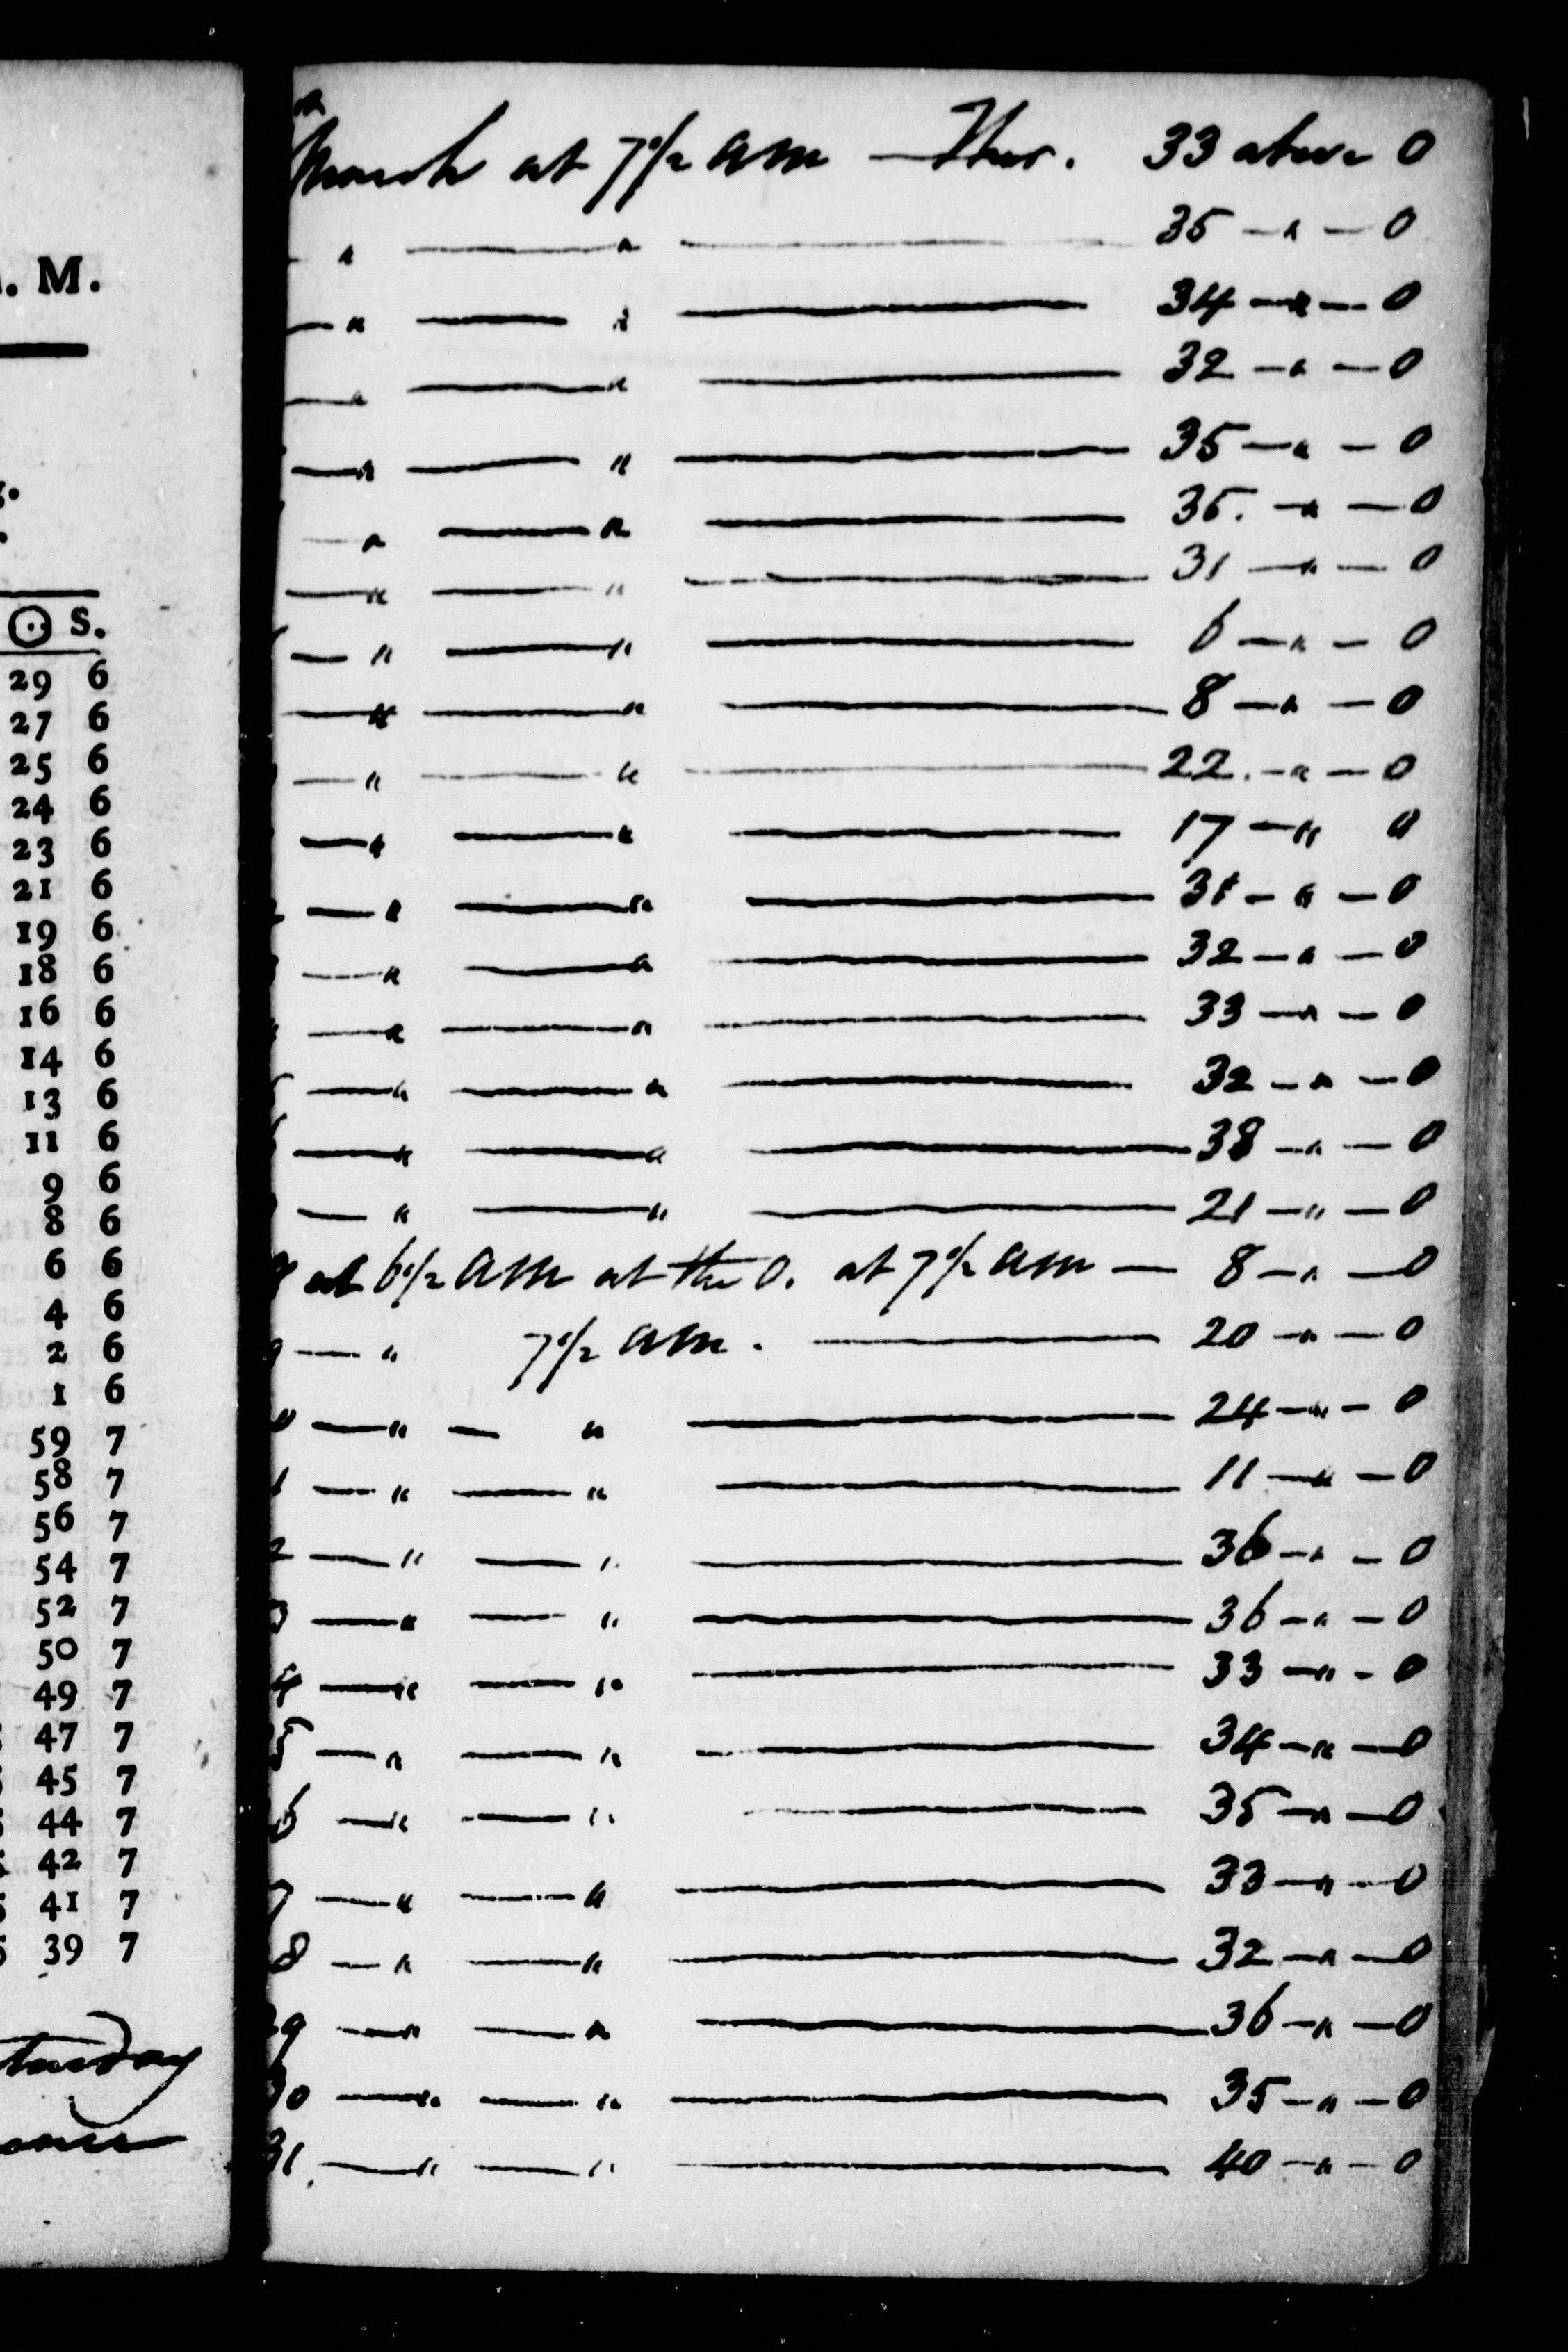 . M.
⊙ S.
29 6
27 6
25 6
24 6
23 6
21 6
19 6
18 6
16 6
14 6
13 6
11 6
9 6
8 6
6 6
4 6
2 6
1 6
59 7
58 7
56 7
54 7
52 7
50 7
49 7
47 7
45 7
44 7
42 7
41 7
39 7
March at 7 1/2 am — Ther. 33 above 0
— " — " — 35 — " — 0
— " — " — 34 — " — 0
— " — " — 32 — " — 0
— " — " — 35 — " — 0
— " — " — 35. — " — 0
— " — " — 31 — " — 0
— " — " — 6 — " — 0
— " — " — 8 — " — 0
— " — " — 22. — " — 0
— " — " — 17 — " 0
— " — " — 31 — " — 0
— " — " — 32 — " — 0
— " — " — 33 — " — 0
— " — " — 32 — " — 0
— " — " — 38 — " — 0
— " — " — 21 — " — 0
8 at 6 1/2 am at the 0. at 7 1/2 am — 8 — " — 0
9 — " 7 1/2 am. — 20 — " — 0
0 — " — " — 24 — " — 0
1 — " — " — 11 — " — 0
2 — " — " — 36 — " — 0
3 — " — " — 36 — " — 0
4 — " — " — 33 — " — 0
5 — " — " — 34 — " — 0
6 — " — " — 35 — " — 0
7 — " — " — 33 — " — 0
8 — " — " — 32 — " — 0
29 — " — " — 36 — " — 0
30 — " — " — 35 — " — 0
31. — " — " — 40 — " — 0